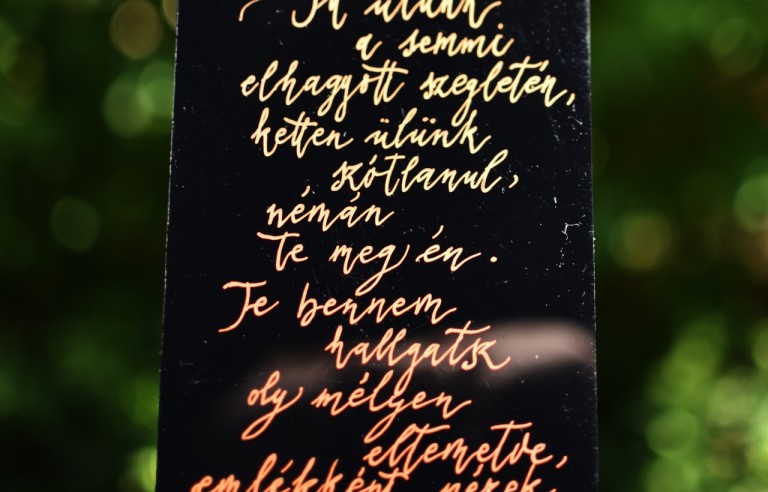 ülünk
a semmi
elhagyott szegletén,
ketten ülünk
szótlanul,
némán
te meg én.
Te bennem
hallgatsz
oly mélyen
eltemetve,
emlékként